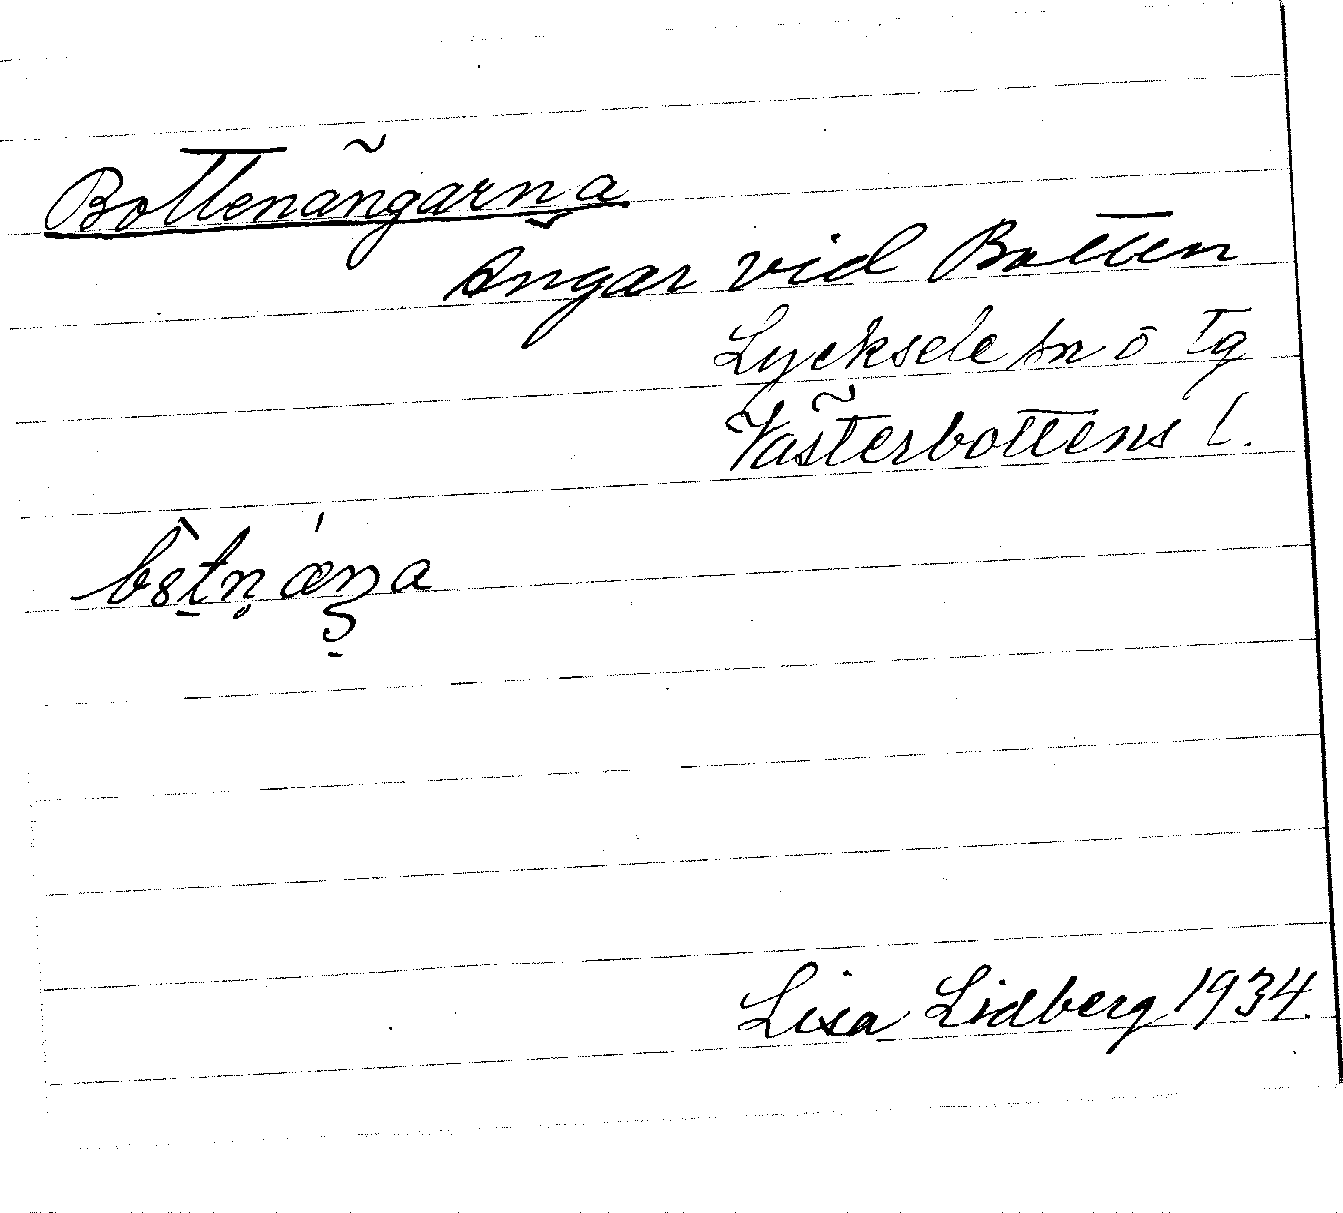 Bottenängarna
Ängar vid Botten
Lycksele sn o tg
Västerbottens l.
Lisa Lidberg 1934.